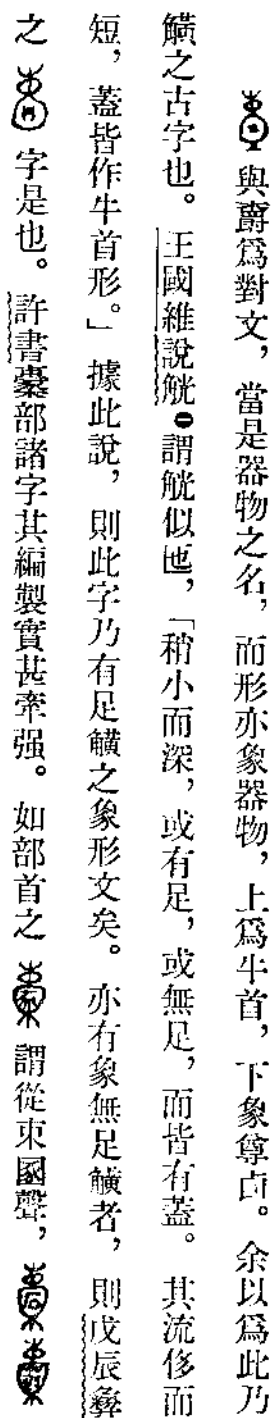 與爵爲對文，當是器物之名，而形亦象器物，上爲牛首，下象尊卣。余以爲此乃
觵之古字也。王國維說觥謂觥似匜，「稍小而深，或有足，或無足，而皆有蓋。其流侈而
短，蓋皆作牛首形。」據此說，則此字乃有足觵之象形文矣。亦有象無足觵者，則戊辰彝
之字是也。許書㯻部諸字其編製實甚牽强。如部首之謂從束圂聲，